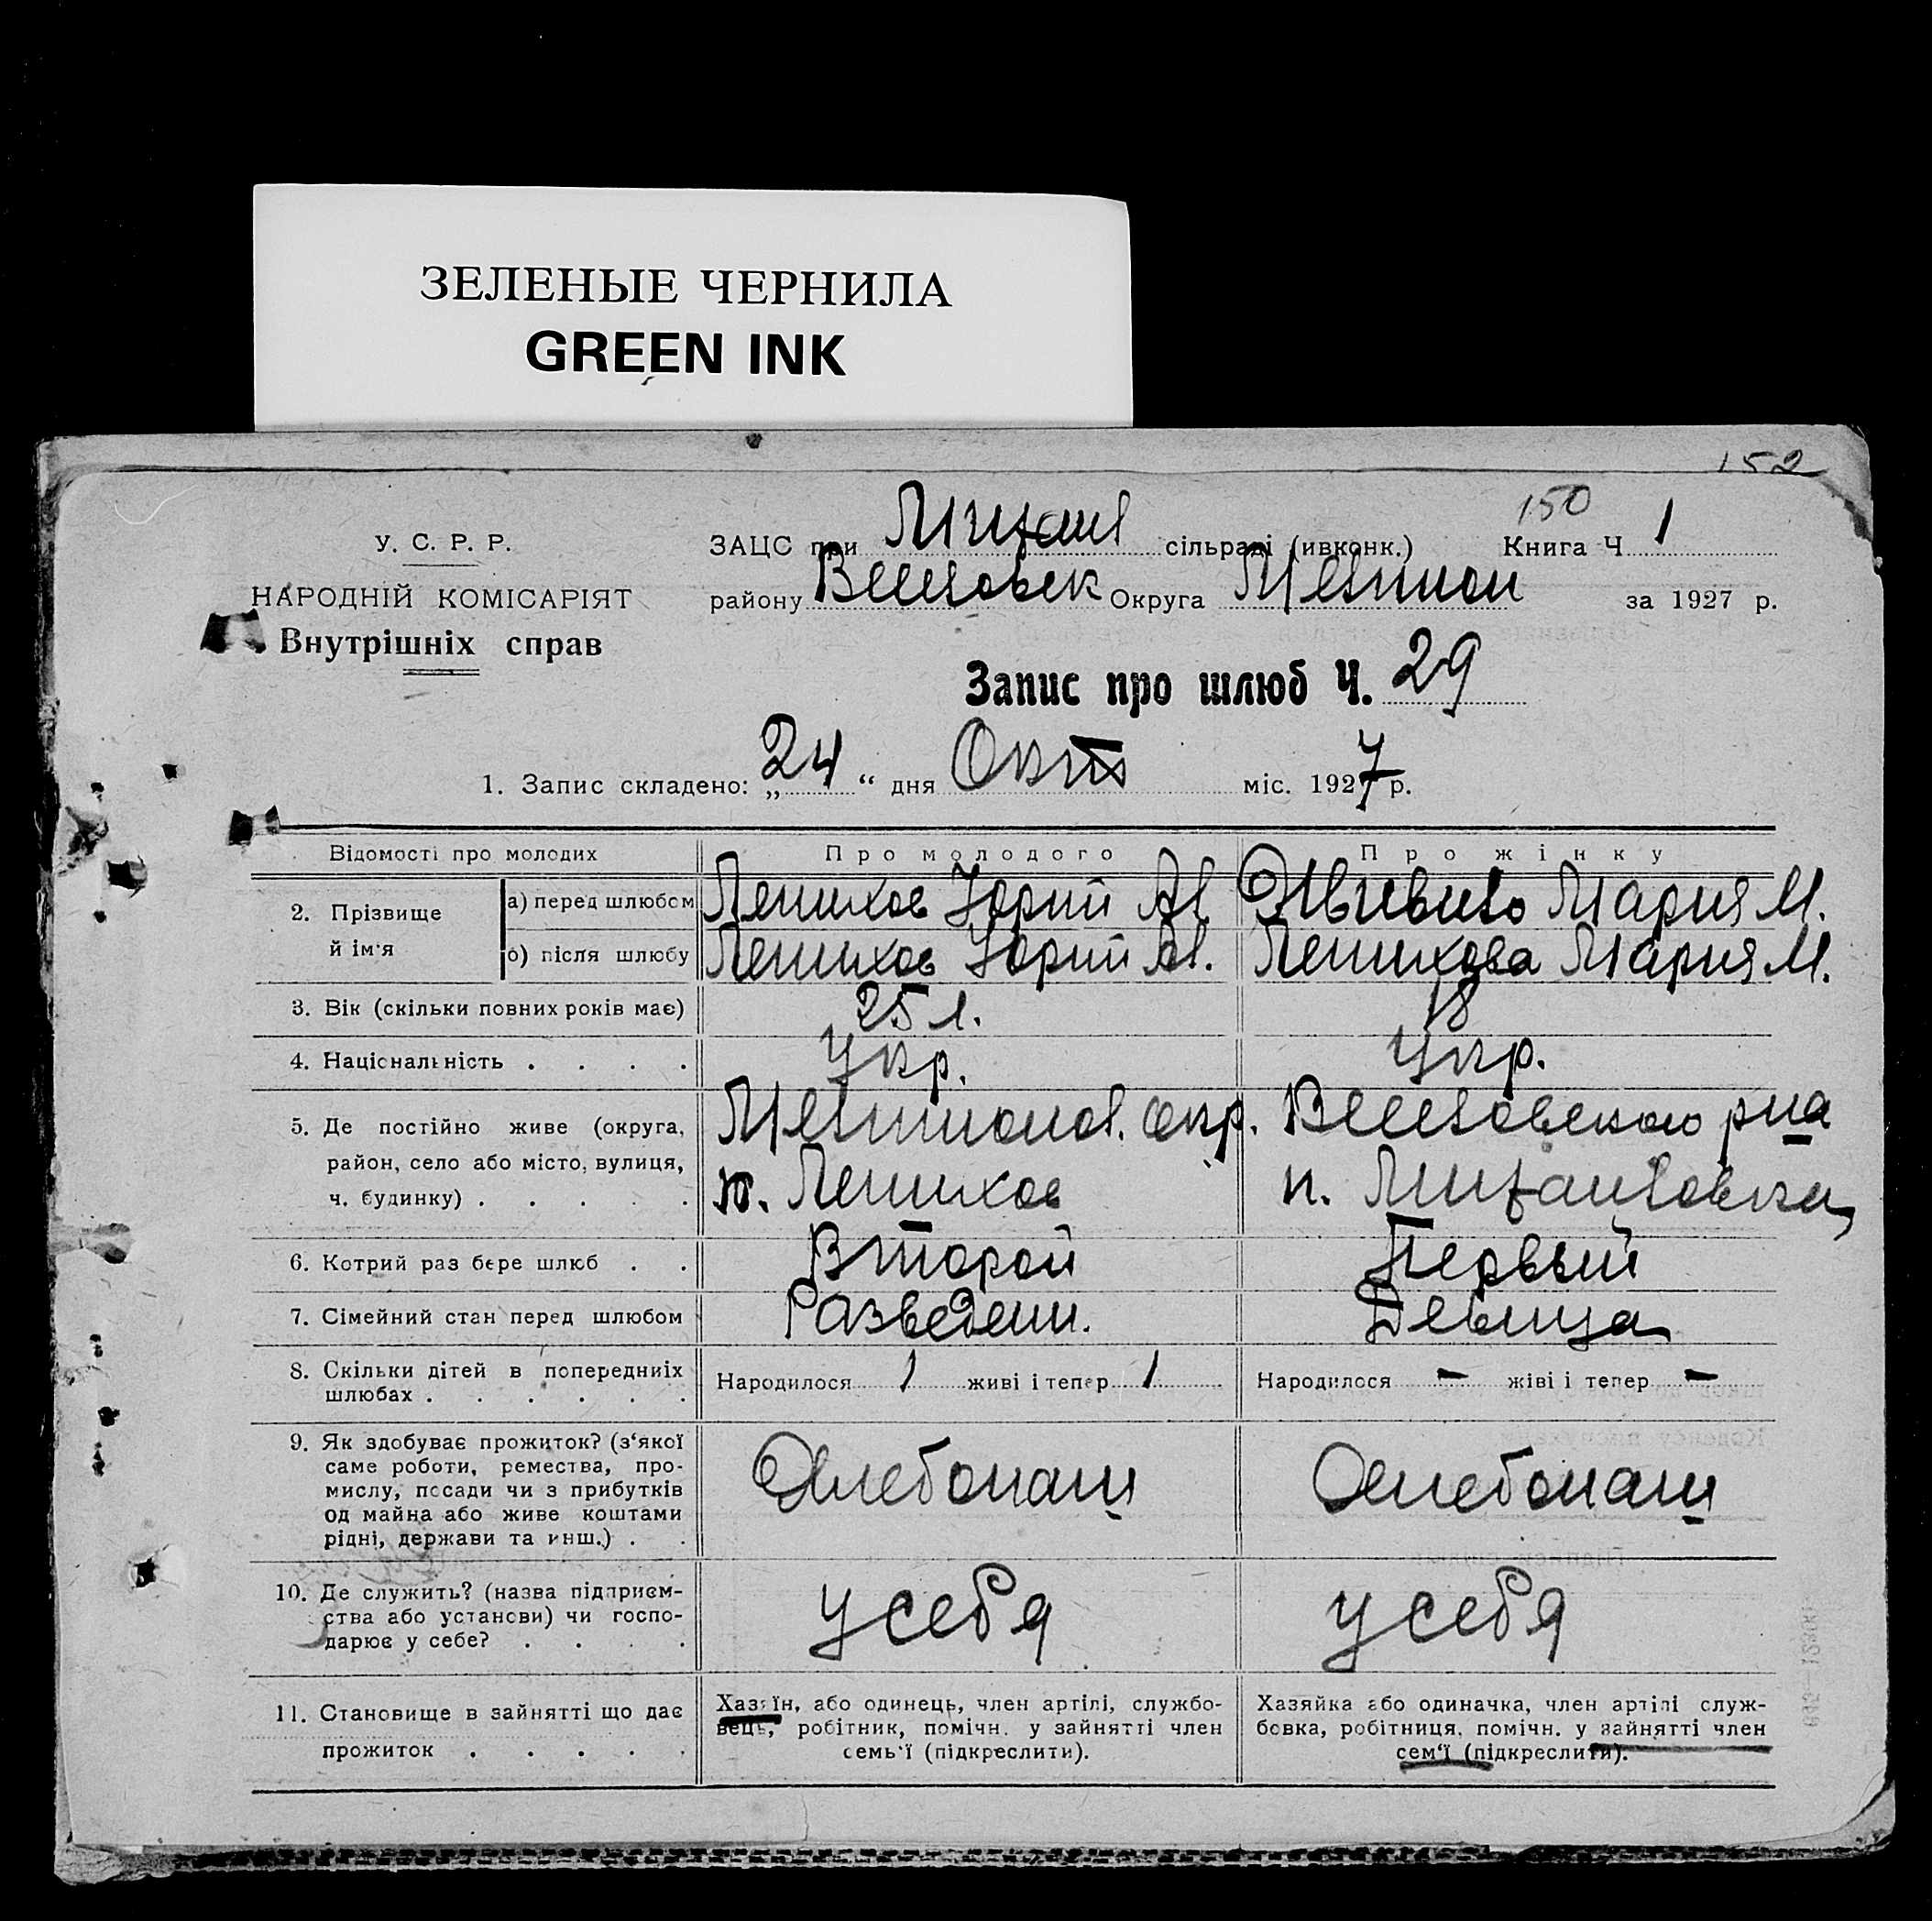 ЗЕЛЕНЫЕ ЧЕРНИЛА
GREEN INK
152
150
У. С. Р. Р.
НАРОДНІЙ КОМІСАРІЯТ
Внутрішніх справ
ЗАЦС при сільраді (ивконк.) Книга Ч 1
району Округа за 1927 р.
Запис про шлюб Ч. 29
1. Запис складено: „24“ дня Окт міс. 1927 р.
Відомості про молодих Про молодого Про жінку
2. Прізвище й ім'я
а) перед шлюбом Юрий Мария М.
б) після шлюбу Юрий Мария М.
3. Вік (скільки повних років має) 25 л. 18
4. Національність . . . . Укр. Укр.
5. Де постійно живе (округа, окр.
район, село або місто, вулиця,
ч. будинку) . . . . .
6. Котрий раз бере шлюб . . Второй Первый
7. Сімейний стан перед шлюбом Разведен. Девица
8. Скільки дітей в попередниіх Народилося 1 живі і тепер 1 Народилося - жіві і тепер -
шлюбах . . . . . .
9. Як здобуває прожиток? (з'якої
саме роботи, ремества, про-
мислу, посади чи з прибутків Хлебопаш Хлебопаш
од майна або живе коштами
рідні, держави та инш.) . .
10. Де служить? (назва підприєм-
ства або установи) чи госпо- у себя у себя
дарює у себе? . . . .
11. Становище в зайнятті що дає
прожиток . . . . .
Хазяїн, або одинець, член артілі, службо-
вець, робітник, помічн. у зайнятті член
семь'ї (підкреслити).
Хазяйка або одиначка, член артілі служ-
бовка, робітниця, помічн. у зайнятті член
сем'ї (підкреслити).